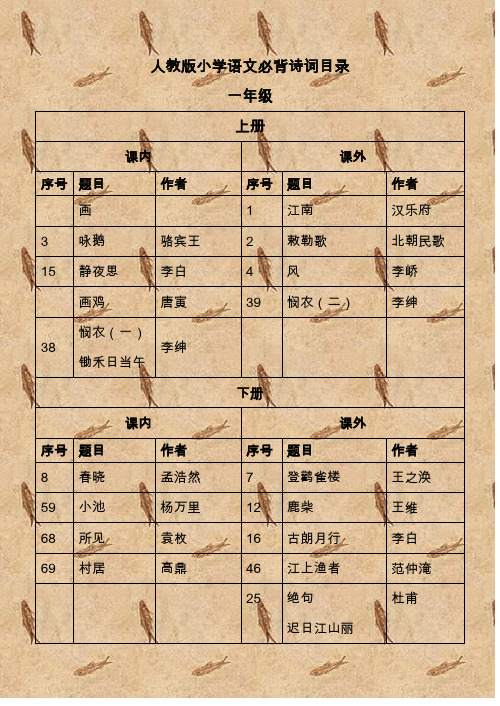 人教版小学语文必背诗词目录
一年级
上册
课内 课外
序号 题目 作者 序号 题目 作者
画 1 江南 汉乐府
3 咏鹅 骆宾王 2 敕勒歌 北朝民歌
15 静夜思 李白 4 风 李峤
画鸡 唐寅 39 悯农（二） 李绅
38 悯农（一） 李绅
锄禾日当午
下册
课内 课外
序号 题目 作者 序号 题目 作者
8 春晓 孟浩然 7 登鹳雀楼 王之涣
59 小池 杨万里 12 鹿柴 王维
68 所见 袁枚 16 古朗月行 李白
69 村居 高鼎 46 江上渔者 范仲淹
25 绝句 杜甫
迟日江山丽